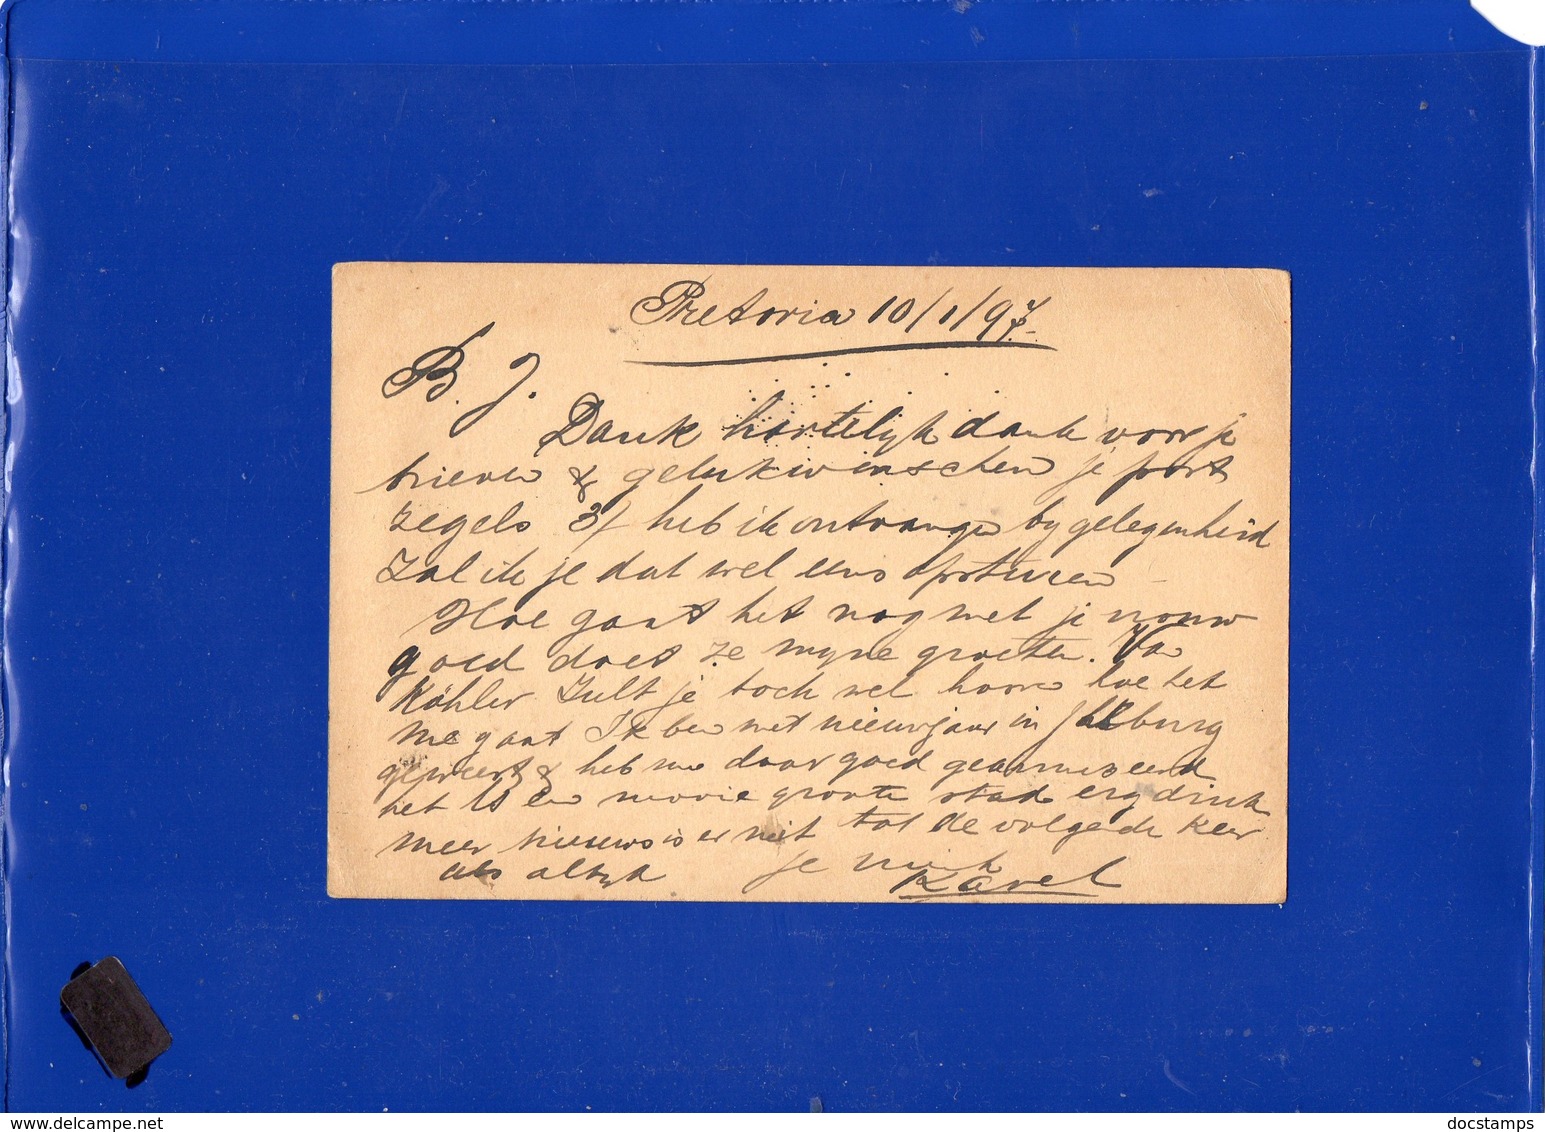 Pretoria 10/1/97
B. J.
Dank hartelijk dank voor je
brieven & gelukwenschen je post
zegels 3/ heb ik ontvangen by gelegenheid
Zal ik je dat wel eens
Hoe gaat het nog met je vrouw
goed doet ze myne groeten. Van
Köhler Zult je toch wel horen hoe het
me gaat Ik ben met nieuwjaar in JHBburg
geweest & heb me daar goed geamuseerd
het is en mooie groote stad erg druk
meer nieuws is er niet tot de volgende keer
als altyd je vriend
Karel
© www.delcampe.net
docstamps